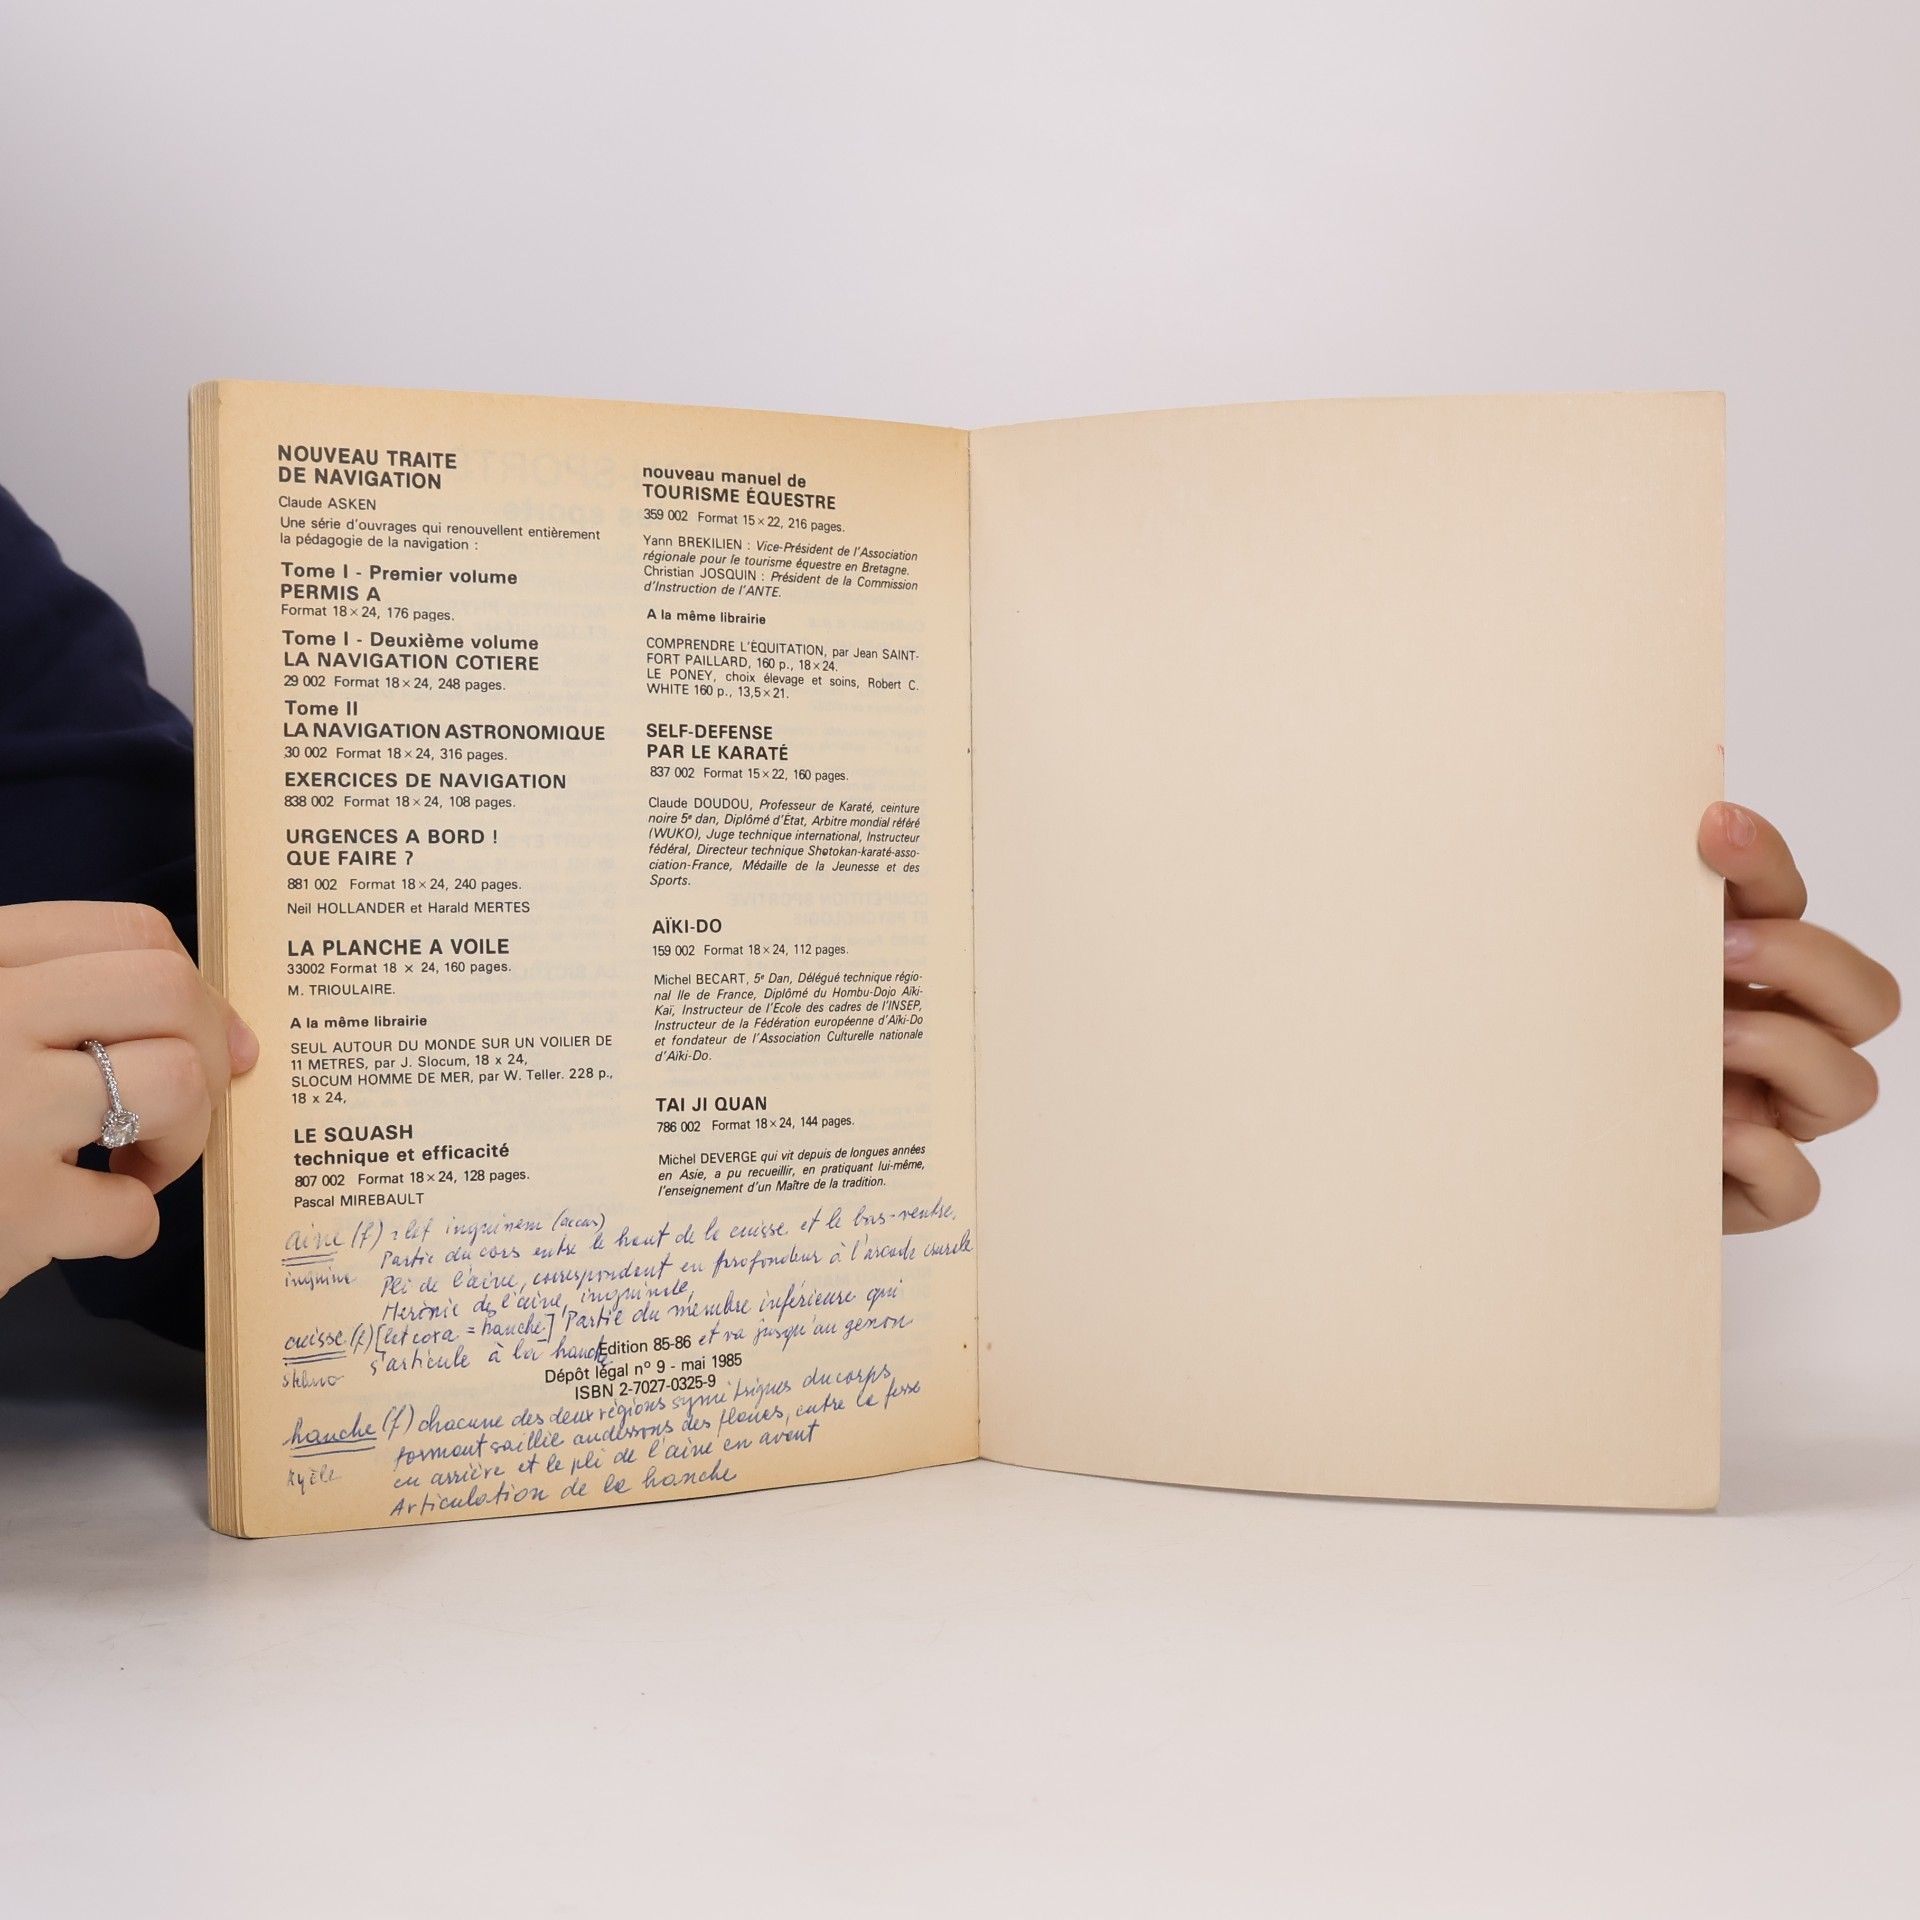 NOUVEAU TRAITE
DE NAVIGATION
Claude ASKEN
Une série d'ouvrages qui renouvellent entièrement
la pédagogie de la navigation :
Tome I - Premier volume
PERMIS A
Format 18 × 24, 176 pages.
Tome I - Deuxième volume
LA NAVIGATION COTIERE
29 002 Format 18 × 24, 248 pages.
Tome II
LA NAVIGATION ASTRONOMIQUE
30 002 Format 18 × 24, 316 pages.
EXERCICES DE NAVIGATION
838 002 Format 18 × 24, 108 pages.
URGENCES A BORD !
QUE FAIRE ?
881 002 Format 18 × 24, 240 pages.
Neil HOLLANDER et Harald MERTES
LA PLANCHE A VOILE
33002 Format 18 × 24, 160 pages.
M. TRIOULAIRE.
A la même librairie
SEUL AUTOUR DU MONDE SUR UN VOILIER DE
11 METRES, par J. Slocum, 18 x 24,
SLOCUM HOMME DE MER, par W. Teller. 228 p.,
18 x 24,
LE SQUASH
technique et efficacité
807 002 Format 18 × 24, 128 pages.
Pascal MIREBAULT
nouveau manuel de
TOURISME ÉQUESTRE
359 002 Format 15 × 22, 216 pages.
Yann BREKILIEN : Vice-Président de l'Association
régionale pour le tourisme équestre en Bretagne.
Christian JOSQUIN : Président de la Commission
d'Instruction de l'ANTE.
A la même librairie
COMPRENDRE L'ÉQUITATION, par Jean SAINT-
FORT PAILLARD, 160 p., 18 × 24.
LE PONEY, choix élevage et soins, Robert C.
WHITE 160 p., 13,5 × 21.
SELF-DEFENSE
PAR LE KARATÉ
837 002 Format 15 × 22, 160 pages.
Claude DOUDOU, Professeur de Karaté, ceinture
noire 5e dan, Diplômé d'État, Arbitre mondial référé
(WUKO), Juge technique international, Instructeur
fédéral, Directeur technique Shotokan-karaté-asso-
ciation-France, Médaille de la Jeunesse et des
Sports.
AÏKI-DO
159 002 Format 18 × 24, 112 pages.
Michel BECART, 5e Dan, Délégué technique régio-
nal Ile de France, Diplômé du Hombu-Dojo Aïki-
Kaï, Instructeur de l'Ecole des cadres de l'INSEP,
Instructeur de la Fédération européenne d'Aïki-Do
et fondateur de l'Association Culturelle nationale
d'Aïki-Do.
TAI JI QUAN
786 002 Format 18 × 24, 144 pages.
Michel DEVERGE qui vit depuis de longues années
en Asie, a pu recueillir, en pratiquant lui-même,
l'enseignement d'un Maître de la tradition.
aine (f) inguinem (accus)
Partie du cors entre le haut de la cuisse et le bas-ventre.
inguine Pli de l'aine, correspondant en profondeur à l'arcade crurale
de l'aine, inguinale,
cuisse (f) [lat coxa = hanche] Partie du membre inférieure qui
s'articule à la hanche et va jusqu'au genou
Edition 85-86
Dépôt légal n° 9 - mai 1985
ISBN 2-7027-0325-9
hanche (f) chacune des deux régions symétriques du corps
formant saillie audessous des flancs, entre la fesse
en arrière et le pli de l'aine en avant
Articulation de la hanche